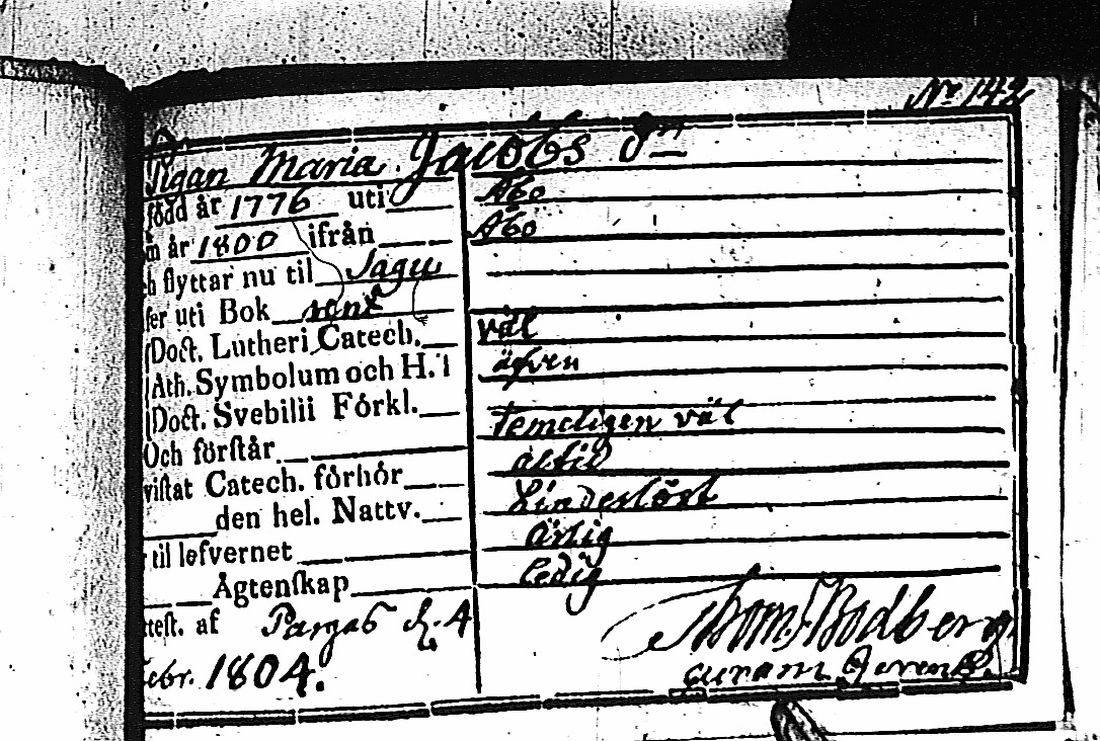 No 142
Pigan Maria Jacobs dn
född år 1776 uti Åbo
m år 1800 ifrån Åbo
h flyttar nu til Sagu
ser uti Bok rent
Doct. Lutheri Catech. väl
Ath. Symbolum och H. äfven
Doct. Svebilii Förkl.
Och förstår temeligen väl
vistat Catech. förhör altid
den hel. Nattv. hinderlöst
til lefvernet ärlig
Ägtenskap ledig
ttest. af Pargas d. 4
ebr. 1804. Bodberg
curam gerens.